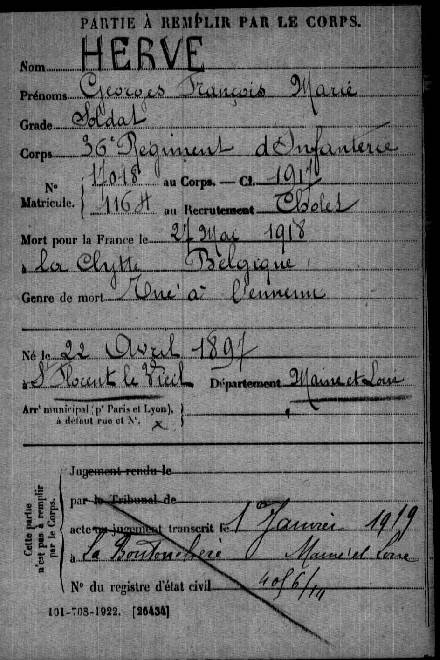 PARTIE À REMPLIR PAR LE CORPS.
Nom HERVE
Prénoms Georges François Marie
Grade Soldat
Corps 36e Régiment d'Infanterie
N° 17018 au Corps. — Cl. 1917
Matricule. 1164 au Recrutement Cholet
Mort pour la France le 27 Mai 1918
à La Clytte Belgique
Genre de mort Tué à l'ennemi
Né le 22 Avril 1897
à St Florent le Vieil Département Maine et Loire
Arrt municipal (pr Paris et Lyon),
à défaut rue et N°.
Cette partie
n'est pas à remplir
par le Corps.
Jugement rendu le
par le Tribunal de
acte ou jugement transcrit le 1er Janvier 1919
à La Boutouchère Maine et Loire
N° du registre d'état civil
101-708-1922. [26434]